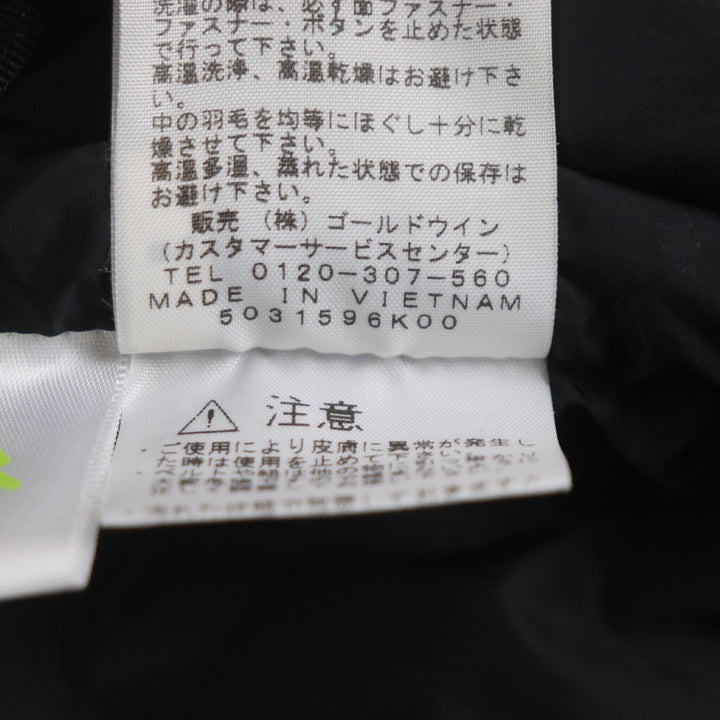 洗濯の際は、必ず面ファスナー・
ファスナー・ボタンを止めた状態
で行って下さい。
高温洗浄、高温乾燥はお避け下さ
い。
中の羽毛を均等にほぐし十分に乾
燥させて下さい。
高温多湿、蒸れた状態での保存は
お避け下さい。
販売 (株) ゴールドウイン
(カスタマーサービスセンター)
TEL 0120-307-560
MADE IN VIETNAM
5031596K00
注意
ご使用により皮膚に異常が発生し
た時は使用を止めて